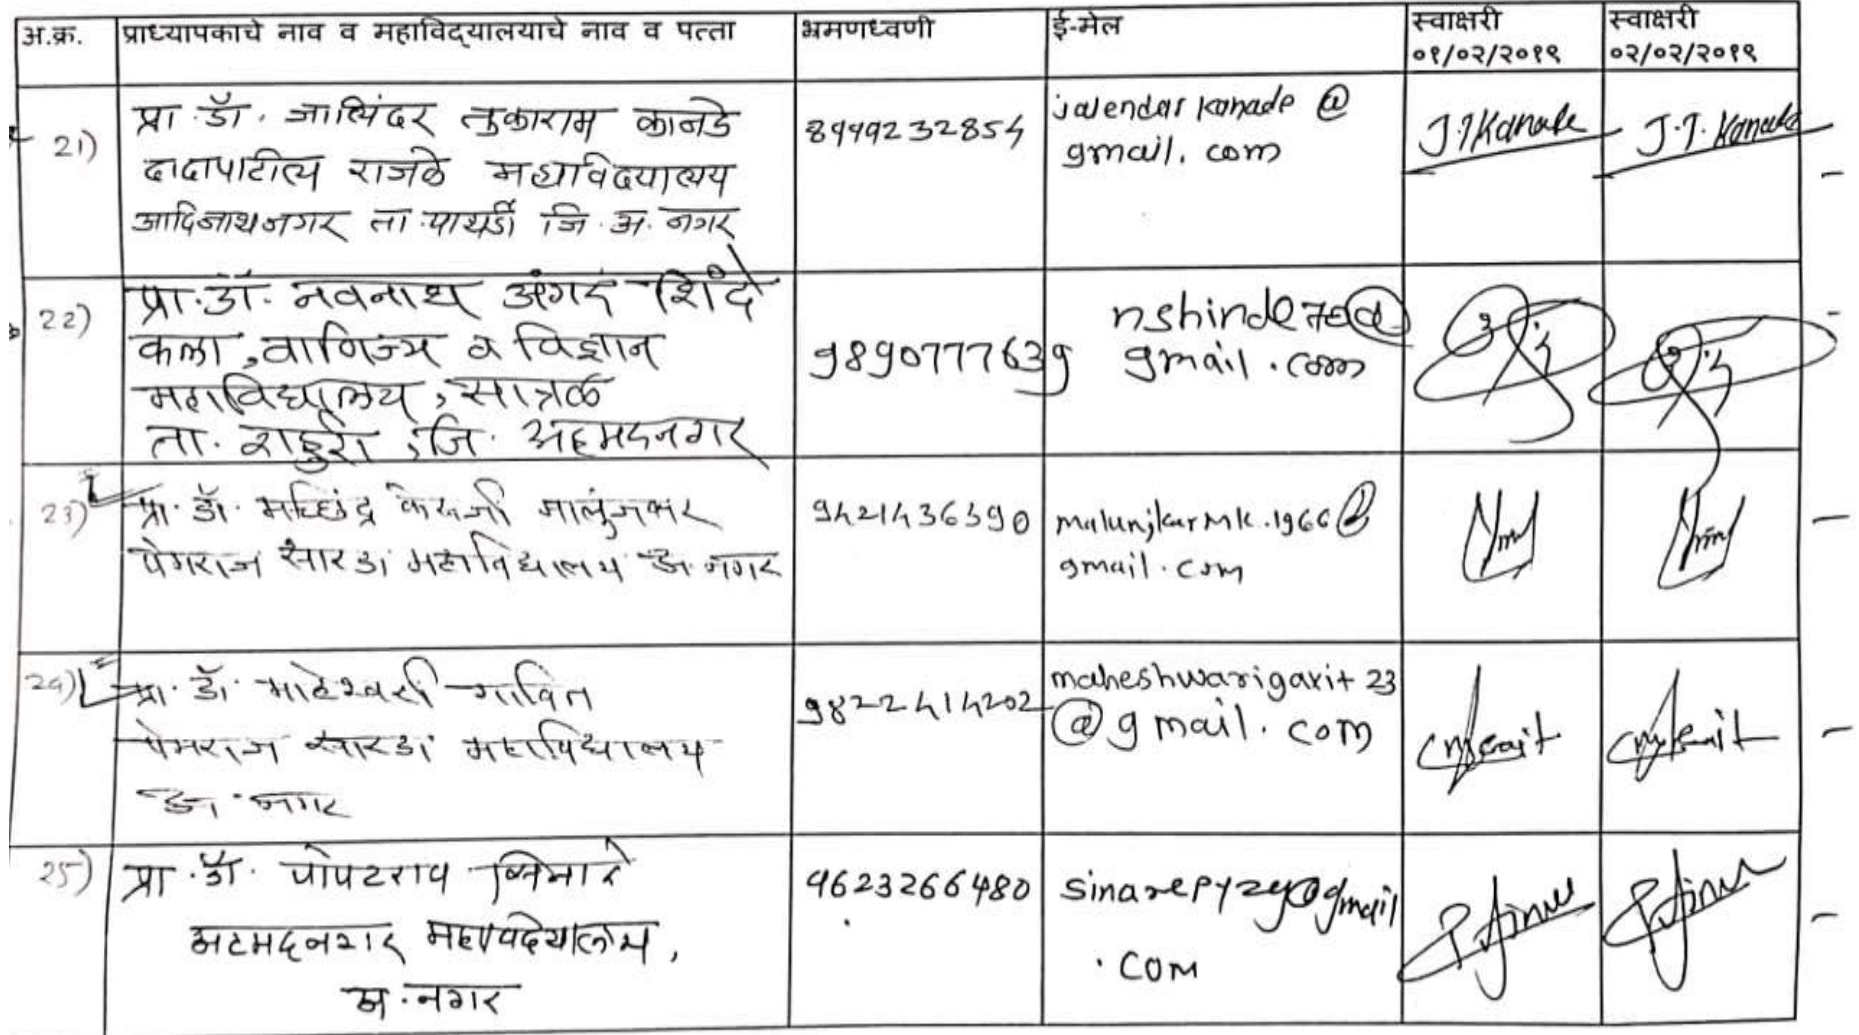 अ.क्र. प्राध्यापकाचे नाव व महाविद्यालयाचे नाव व पत्ता भ्रमणध्वणी ई-मेल स्वाक्षरी ०१/०२/२०१९ स्वाक्षरी ०२/०२/२०१९
21) प्रा. डॉ. जालिंदर तुकाराम कानडे
दादापाटील राजळे महाविद्यालय
आदिनाथनगर ता. पाथर्डी जि. अ. नगर
jalendar kanade @
gmail. com
J.T Kanade J.T. Kanade
22) प्रा. डॉ. नवनाथ अंगद शिंदे
कला, वाणिज्य व विज्ञान
महाविद्यालय, सात्रळ
ता. राहुरी, जि. अहमदनगर
9890777639
nshinde70@
gmail.com
23) प्रा. डॉ. मच्छिंद्र मालुंजकर
पेमराज सारडा महाविद्यालय अ. नगर
malunjkarmk.1966@
gmail.com
24) प्रा. डॉ. माहेश्वरी गावित
पेमराज सारडा महाविद्यालय
अ. नगर
9822414202
maheshwarigavit23
@gmail.com
25) प्रा. डॉ. पोपटराव सिनारे
अहमदनगर महाविद्यालय,
अ. नगर
9623266480
gmail
.com